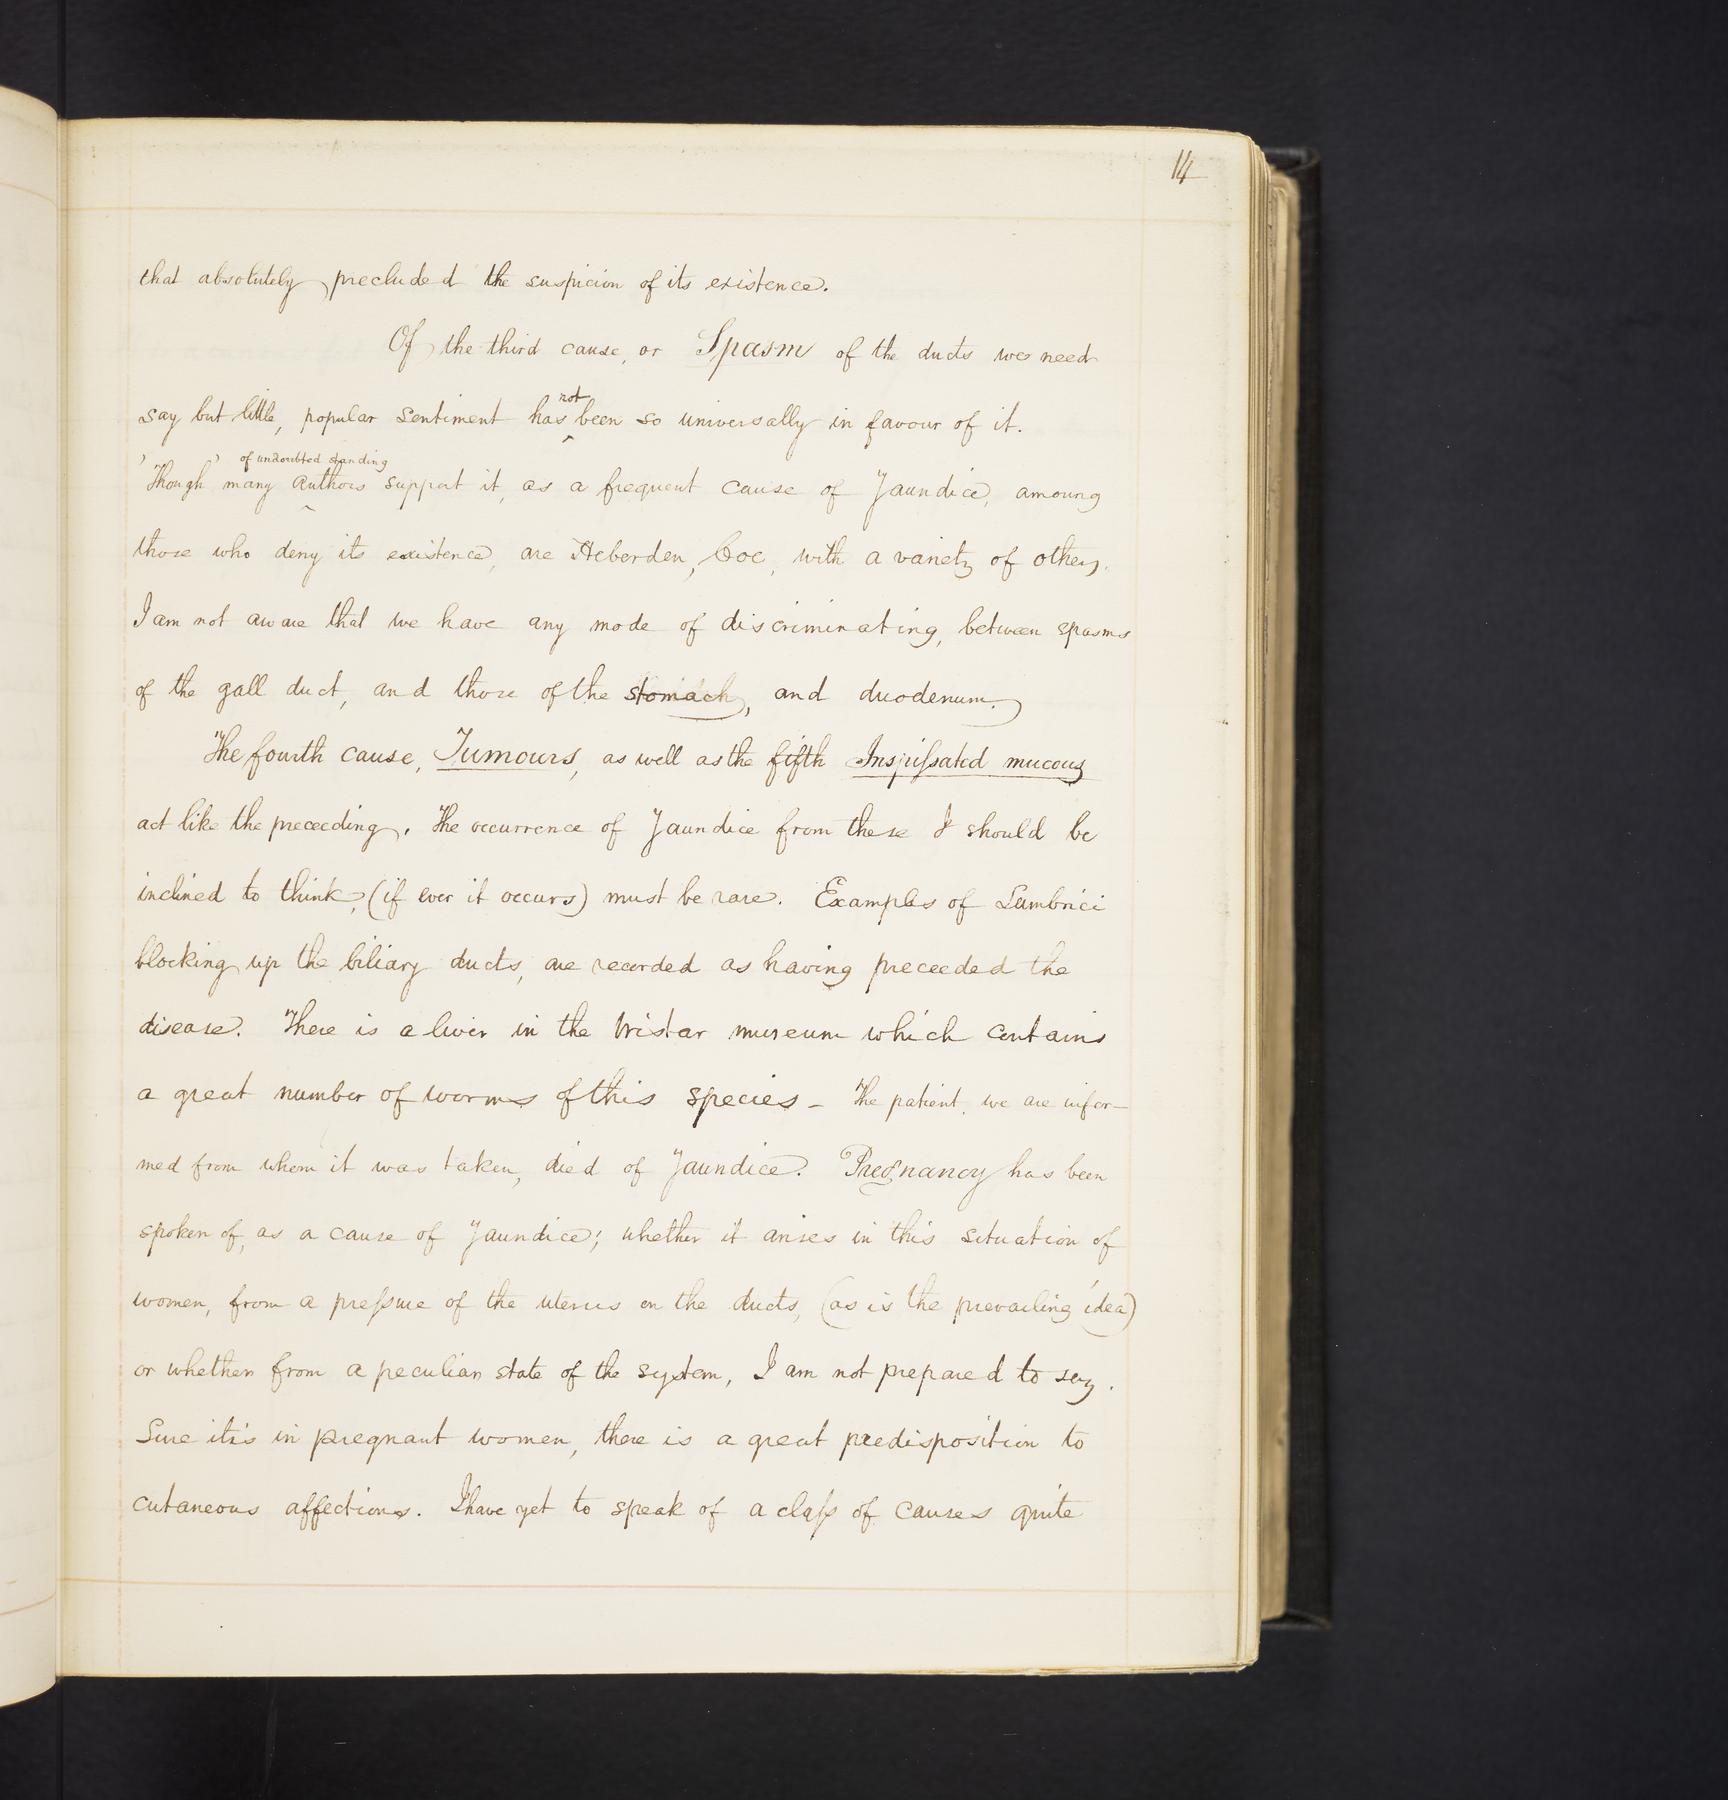 14
that absolutely precluded the suspicion of its existence.
Of the third cause, or Spasm of the ducts we need
say but little, popular sentiment has not been so universally in favour of it.
Though many of undoubted standing Authors support it, as a frequent cause of Jaundice, amoung
those who deny its existence, are Heberden, Coe, with a variety of others.
I am not aware that we have any mode of discriminating, between spasms
of the gall duct, and those of the stomach, and duodenum.
The fourth cause, Tumours, as well as the fifth Inspissated mucous
act like the preceeding. The occurrence of Jaundice from these I should be
inclined to think, (if ever it occurs) must be rare. Examples of Lumbrici
blocking up the biliary ducts, are recorded as having preceeded the
disease. There is a liver in the Wistar museum which contains
a great number of worms of this species - The patient, we are infor-
med from whom it was taken, died of Jaundice. Pregnancy has been
spoken of, as a cause of Jaundice; whether it arises in this situation of
women, from a pressure of the uterus on the ducts, (as is the prevailing idea)
or whether from a peculiar state of the system, I am not prepared to say.
Sure it is in pregnant women, there is a great predisposition to
cutaneous affections. I have yet to speak of a class of causes quite